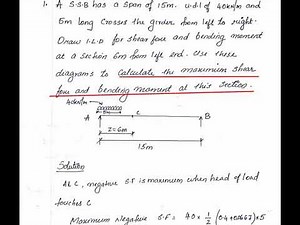 1. A S.S.B has a span of 15m. u.d.l of 40kN/m and
5m long crosses the girder from left to right.
Draw I.L.D for shear force and bending moment
at a section 6m from left end. Use these
diagrams to calculate the maximum shear
force and bending moment at this section.
40kN/m
A C B
Z=6m
15m
Solution
At C, negative SF is maximum when head of load
touches C
Maximum Negative S.F = 40 × 1/2 (0.4+0.0667)×5